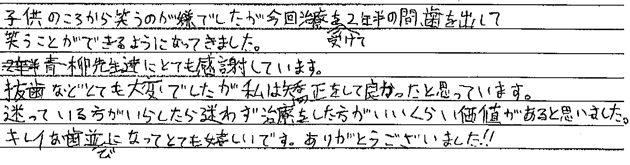 子供のころから笑うのが嫌でしたが今回治療を受けて2年半の間、歯を出して
笑うことができるようになってきました。
青柳先生達にとても感謝しています。
抜歯などとても大変でしたが私は矯正をして良かったと思っています。
迷っている方がいらしたら迷わず治療をした方がいいくらい価値があると思いました。
キレイな歯並びになってとても嬉しいです。ありがとうございました!!